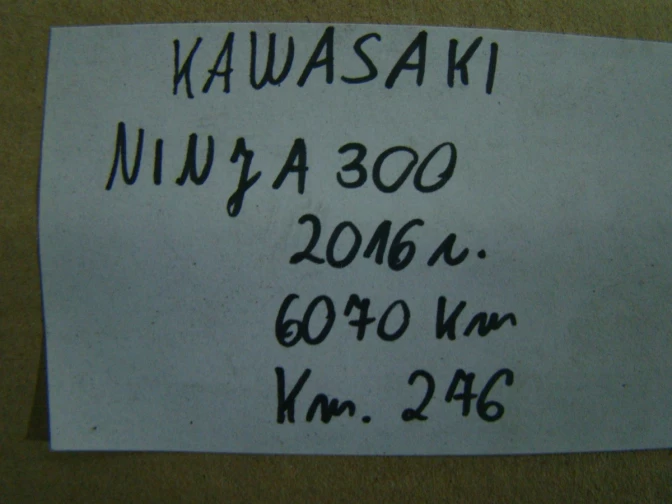 KAWASAKI
NINJA 300
2016 r.
6070 Km
Km. 276